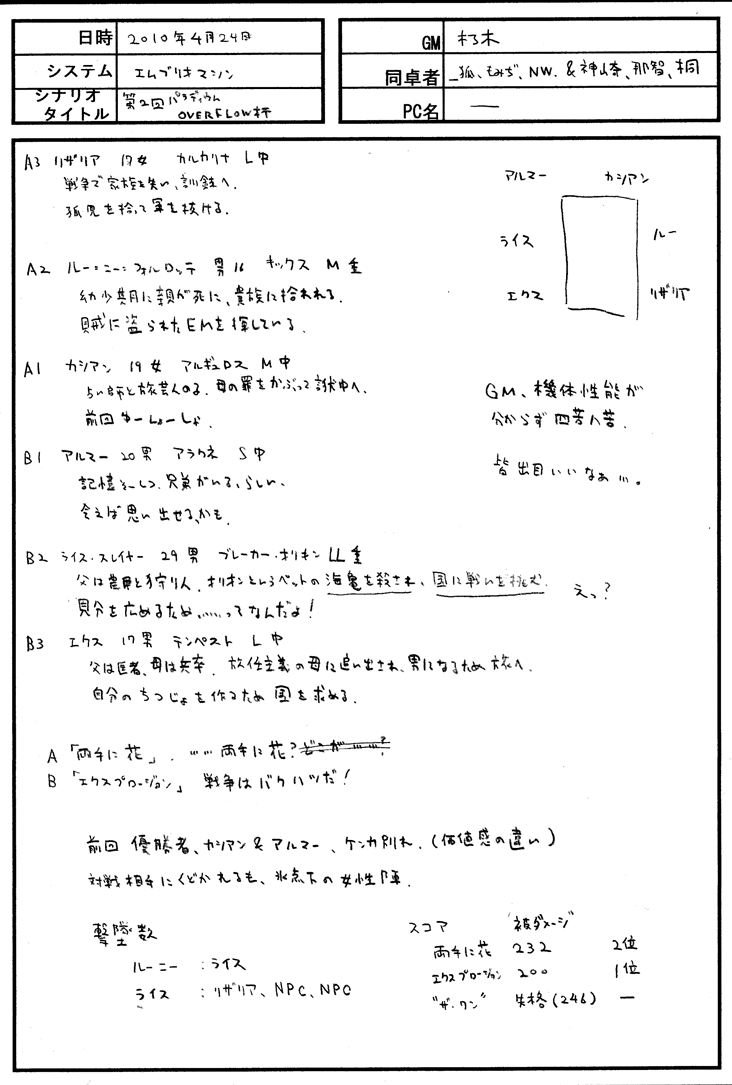 日時 2010年4月24日
GM 朽木
システム エムブリオマシン
同卓者 狐、もみぢ、NW. &神山奈、那智、桐
シナリオタイトル 第2回パラディウム OVERFLOW杯
PC名 ―
A3 リザリア 17女 カルカリナ L中
戦争で家族を失い、訓練へ.
孤児を拾って軍を抜ける.
アルマー カシアン
ライス ルー
エクス リザリア
A2 ルー=ニー=フォルロッテ 男16 キックス M重
幼少期に親が死に、貴族に拾われる.
賊に盗られたEMを探している.
A1 カシアン 19女 アルギュロス M中
占い師と旅芸人の子. 母の罪をかぶって訴訟中へ.
前回ゆーしょーしょ.
GM、機体性能が
分からず四苦八苦.
B1 アルマー 20男 アラクネ S中
記憶そーしつ. 兄弟がいる、らしい.
会えば思い出せる、かも.
皆出目いいなぁ…。
B2 ライス・スレイヤー 29男 ブレーカー・オリオン LL重
父は農民と狩り人. オリオンというペットの海亀を殺され、国に戦いを挑む. えっ?
見分を広めるため、……ってなんだよ!
B3 エクス 17男 テンペスト L中
父は医者、母は兵卒. 放任主義の母に追い出され、男になるため旅へ.
自分のちつじょを作るため国を求める.
A 「両手に花」. ……両手に花? どこが……?
B 「エクスプロージョン」 戦争はバクハツだ!
前回優勝者、カシアン&アルマー、ケンカ別れ. (価値感の違い)
対戦相手にくどかれるも、氷点下の女性陣.
撃墜数
ルーニー :ライス
ライス :リザリア、NPC、NPC
スコア "被ダメージ"
両手に花 232 2位
エクスプロージョン 200 1位
"ザ・ワン" 失格(246) ―